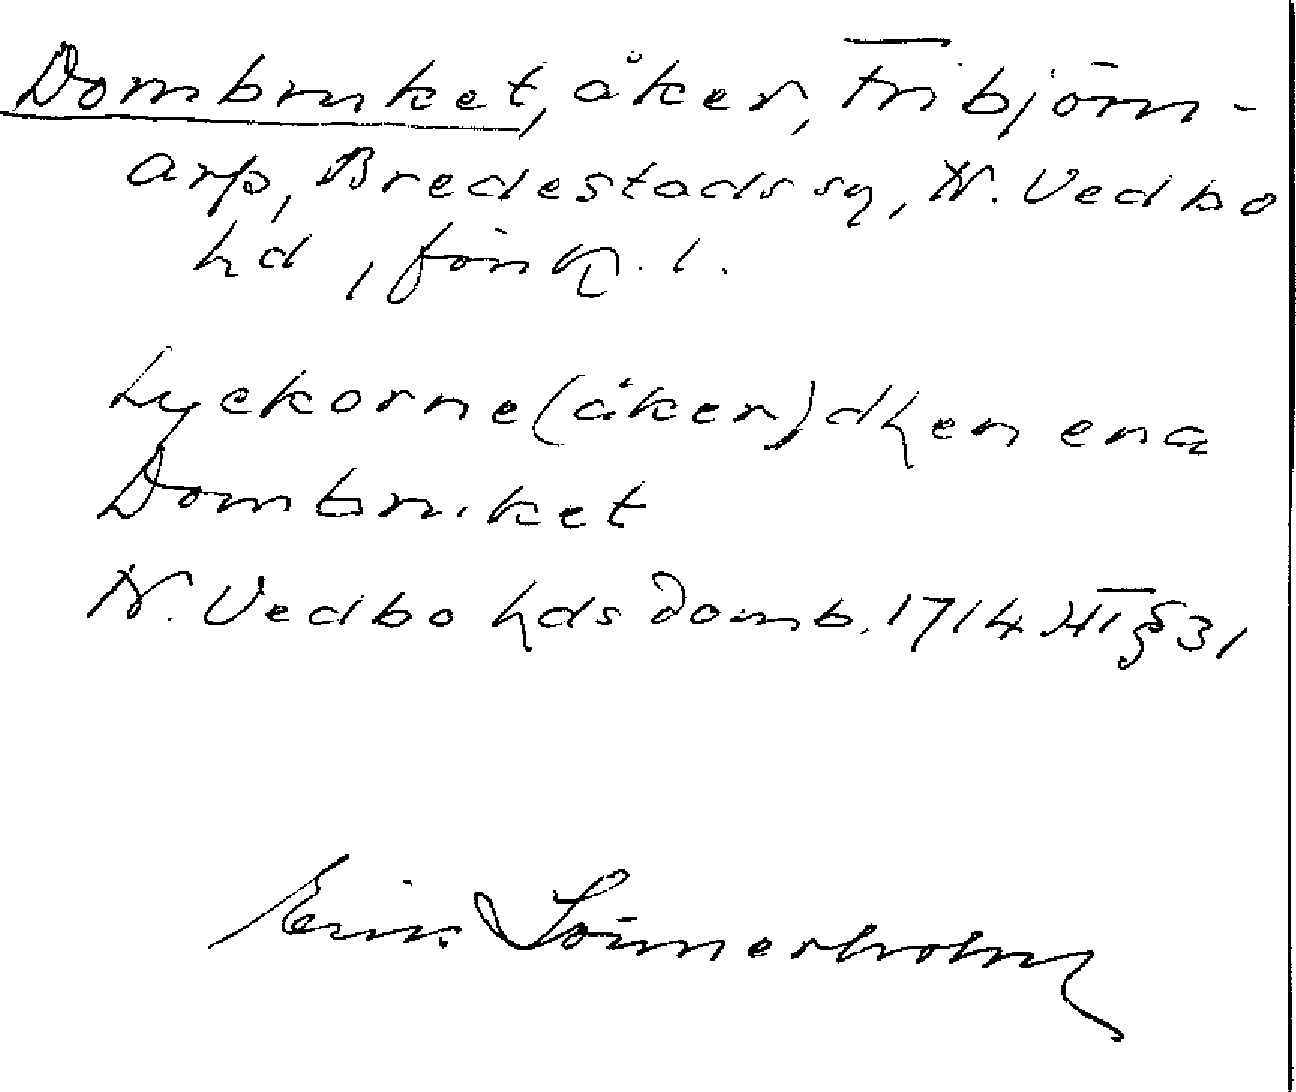 Dombruket, åker, Fribjörn-
arp, Bredestads sn, N. Vedbo
hd, Jönk. l.
Lyckorne (åker) dhen ena
Dombruket
N. Vedbo hds domb. 1714 HT § 31